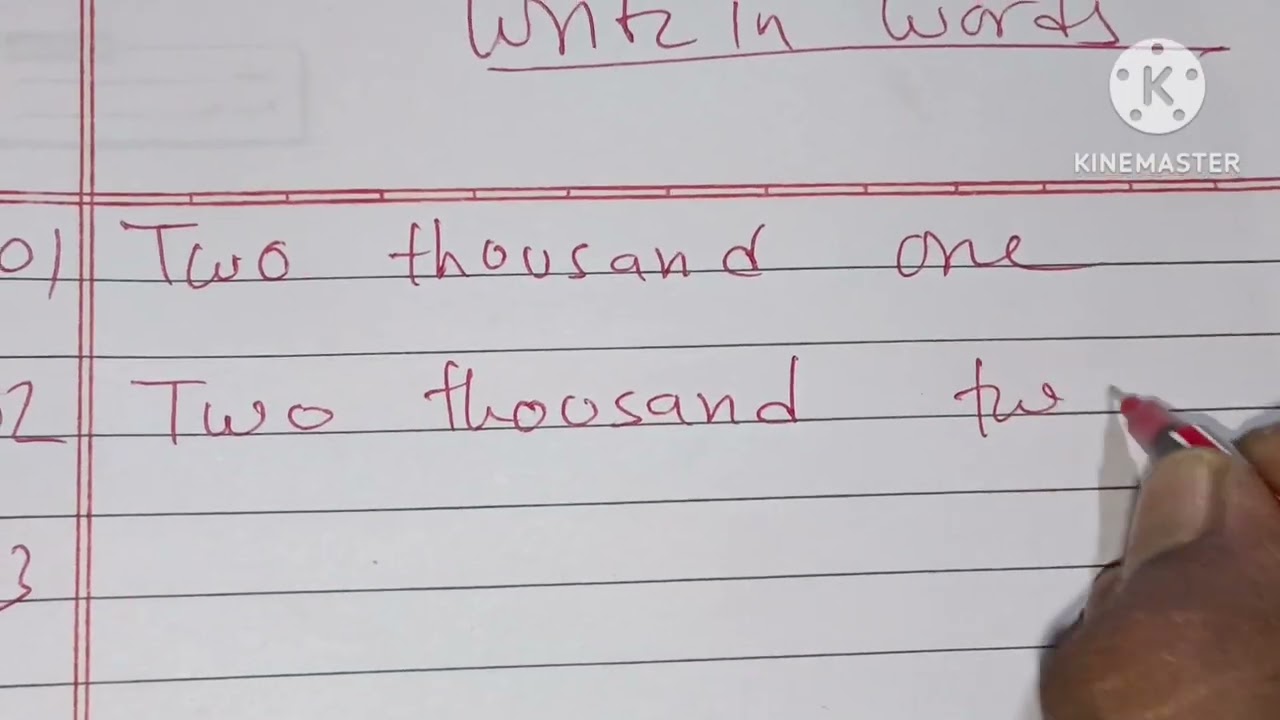 Write in words
K
KINEMASTER
01 Two thousand one
2 Two thousand tw
3